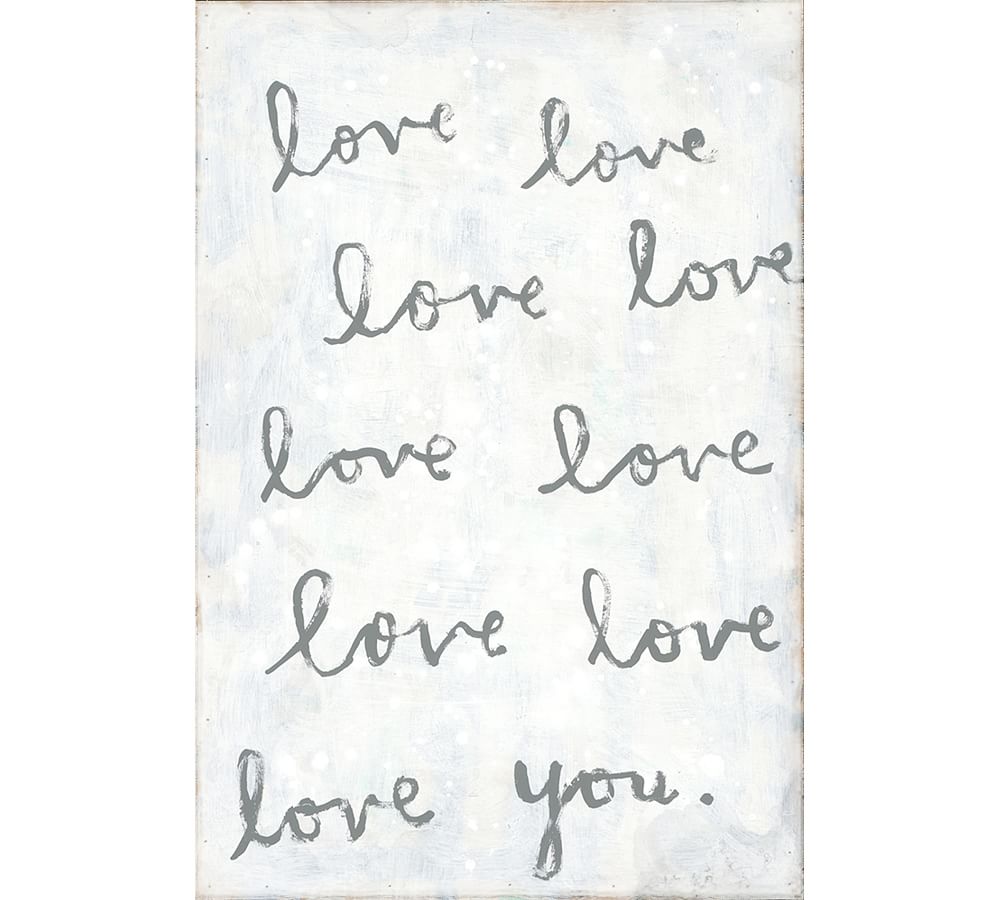 love love
love love
love love
love love
love you.